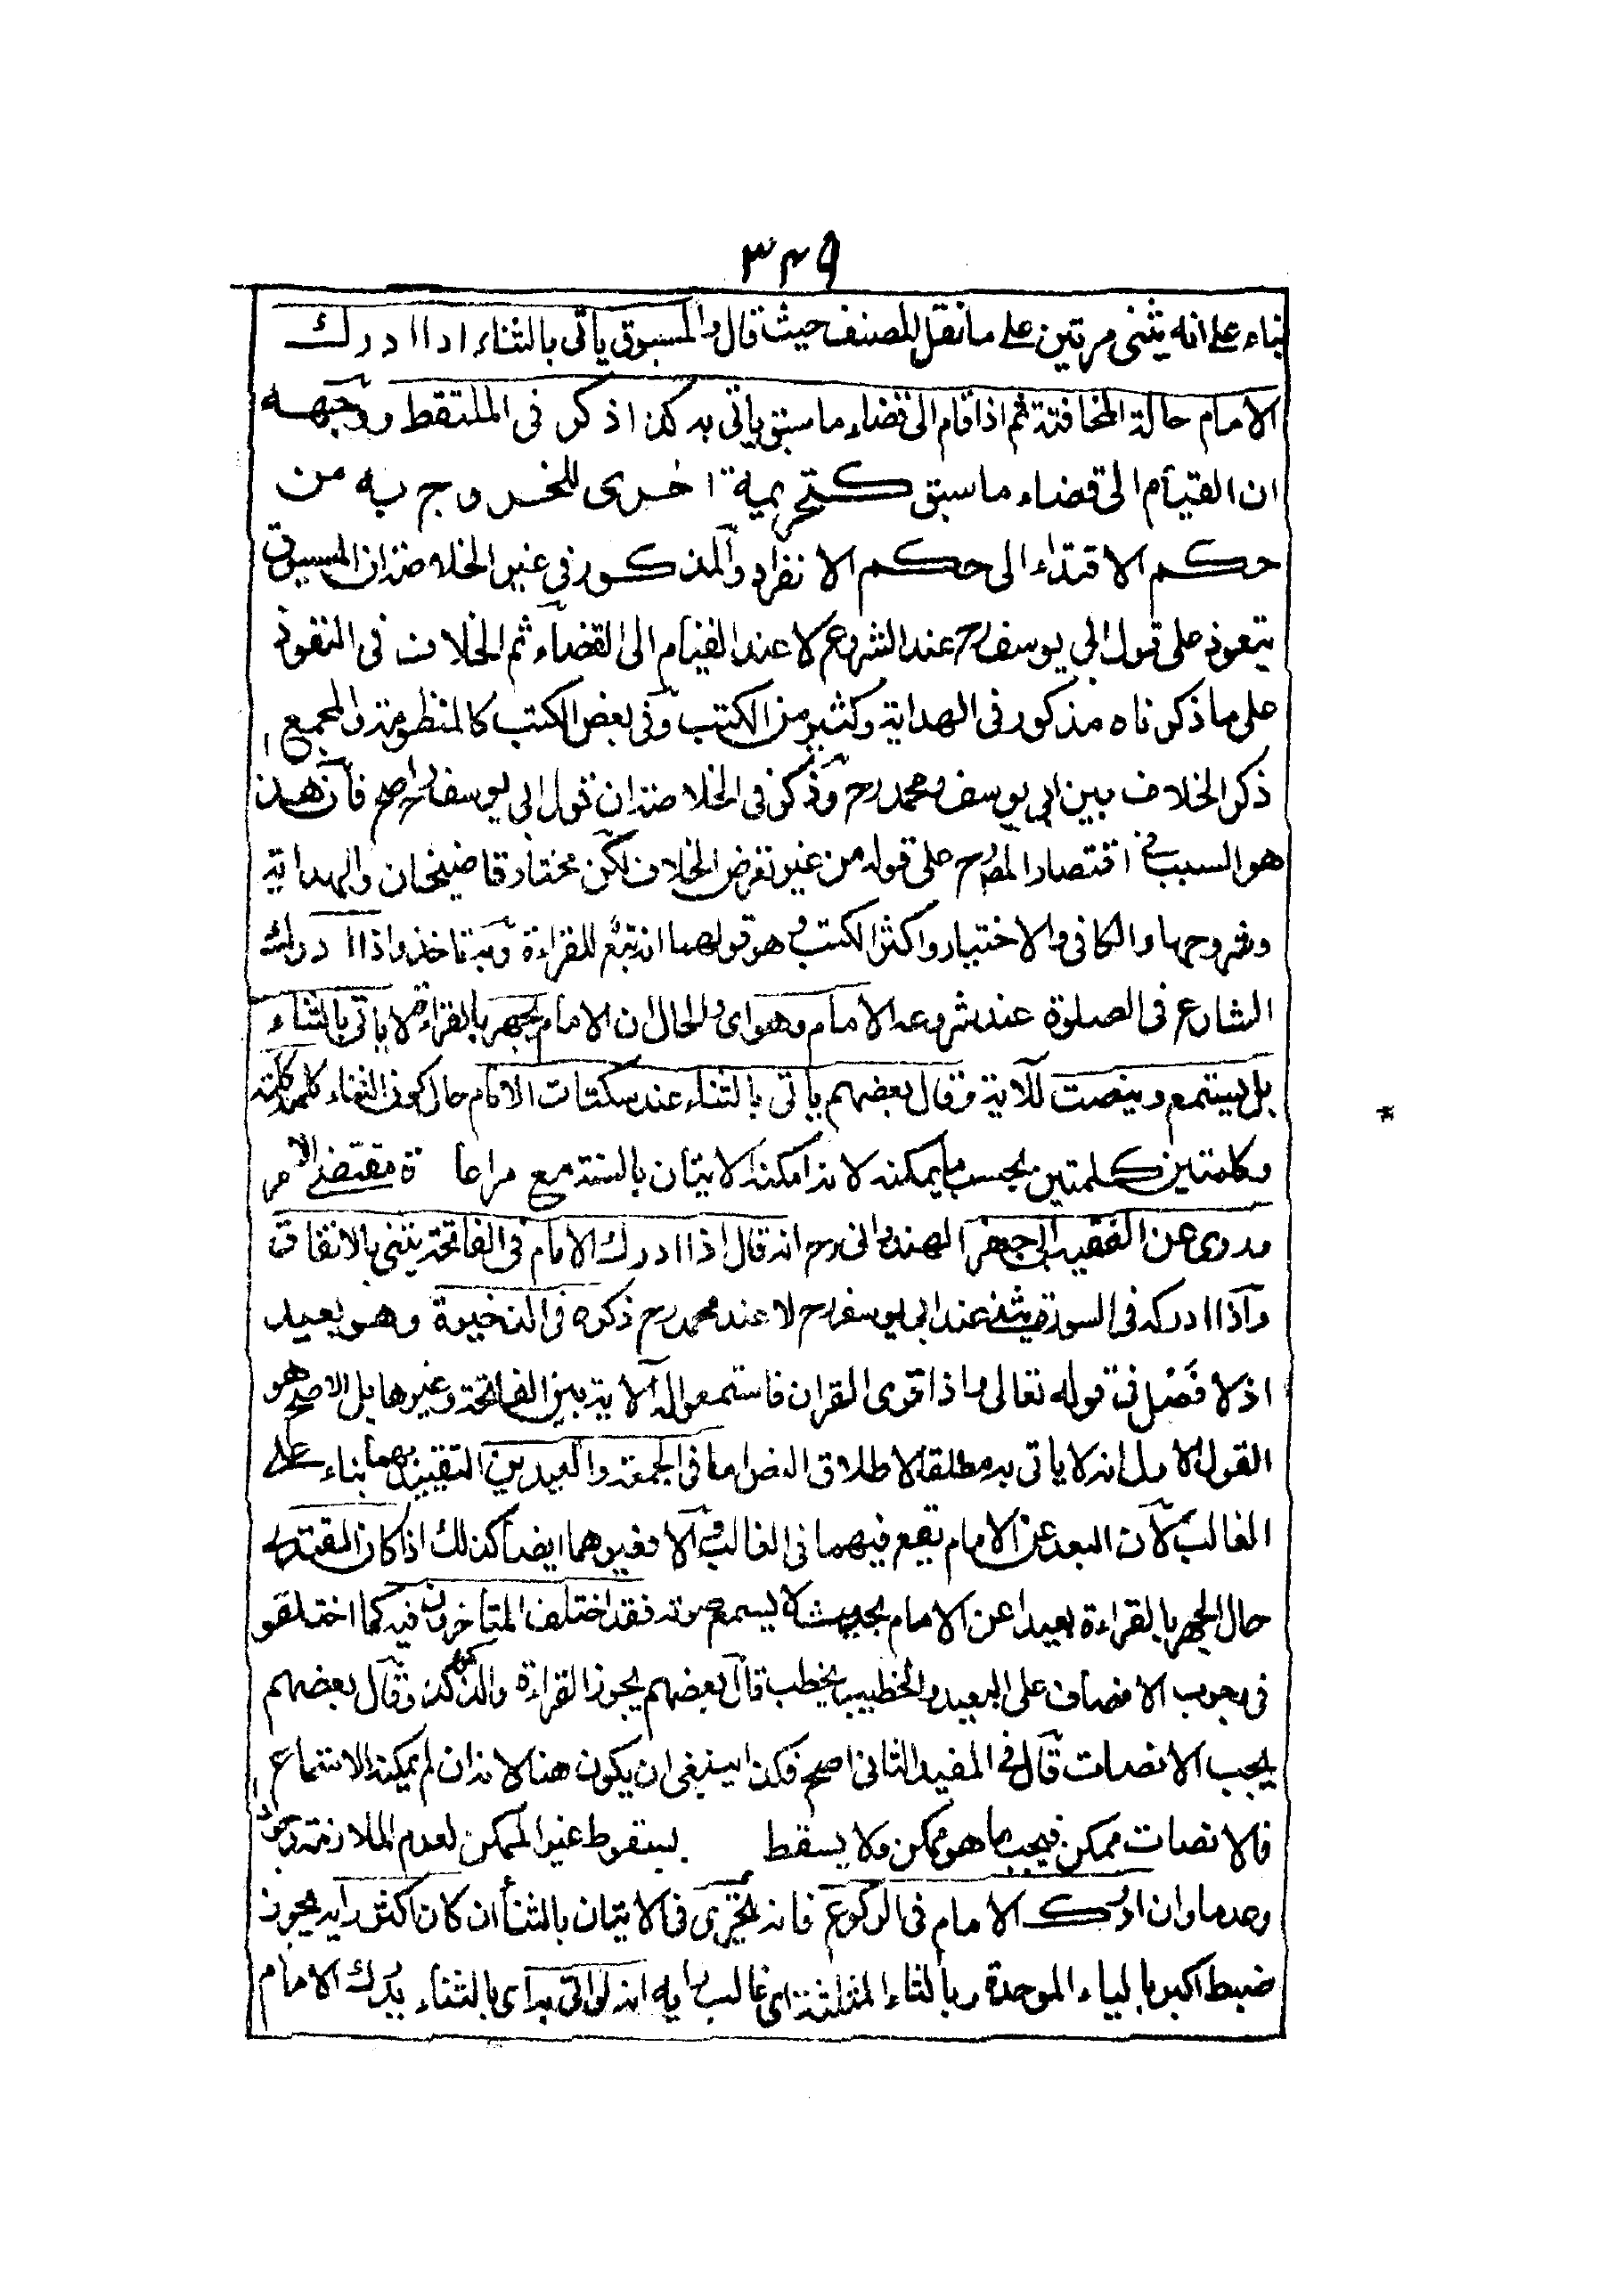 ٣٤٩
بناء على انه يثنى مرتين على ما نقل المصنف حيث قال والمسبوق ياتى بالثناء اذا ادرك
الامام حالة المخافتة ثم اذا قام الى قضاء ما سبق ياتى به كذا ذكر فى الملتقط ووجهه
ان القيام الى قضاء ما سبق كتحريمة اخرى للخروج به من
حكم الاقتداء الى حكم الانفراد والمذكور فى غير الخلاصة ان المسبوق
يتعوذ على قول ابي يوسف رح عند الشروع لا عند القيام الى القضاء ثم الخلاف فى التعوذ
على ما ذكرناه مذكور فى الهداية وكثير من الكتب وفى بعض الكتب كالمنظومة والمجمع
ذكر الخلاف بين ابى يوسف ومحمد رح وذكر فى الخلاصة ان قول ابى يوسف رح اصح فكان هذا
هو السبب فى اقتصار المص رح على قوله من غير تعرض الخلاف لكن مختار قاضيخان والهداية
وشروحها والكافى والاختيار واكثر الكتب هو قولهما انه تبع للقراءة وبه ناخذ واذا ادرك
الشارع فى الصلوة عند شروعه الامام وهو اى والحال ان الامام يجهر بالقراءة لا ياتى بالثناء
بل يستمع وينصت للآية وقال بعضهم ياتى بالثناء عند سكتات الامام حال كون الثناء كلمة كلمة
وكلمتين كلمتين بحسب ما يمكنه لانه امكنه الاتيان بالسنة مع مراعاة مقتضى الامر
وروى عن الفقيه ابى جعفر الهندوانى رح انه قال اذا ادرك الامام فى الفاتحة يثنى بالاتفاق
واذا ادركه فى السورة يثنى عند ابى يوسف رح لا عند محمد رح ذكره فى الذخيرة وهو بعيد
اذ لا فصل فى قوله تعالى واذا قرى القران فاستمعوا له الاية بين الفاتحة وغيرها بل الاصح هو
القول الاول انه لا ياتى به مطلقا لاطلاق النص اما فى الجمعة والعيدين التقييد بهما بناء على
الغالب لان البعد عن الامام يقع فيهما فى الغالب والا فغيرهما ايضا كذلك اذا كان المقتدى
حال الجهر بالقراءة بعيدا عن الامام بحيث لا يسمع صوته فقد اختلف المتاخرون فيه كما اختلفو
فى وجوب الانصات على البعيد والخطيب يخطب قال بعضهم يجوز القراءة والذكر وقال بعضهم
يجب الانصات قال فى المفيد الثانى اصح فكذا ينبغى ان يكون هنا لانه ان لم يمكنه الاستماع
فالانصات ممكن فيجب ما هو ممكن ولا يسقط بسقوط غير الممكن لعدم الملازمة وجودا
وعدما وان ادرك الامام فى الركوع فانه يتحرى فى الاتيان بالثناء ان كان اكثر رايه يجوز
ضبط اكبر بالباء الموحدة وبالثاء المثلثة اى غالب رايه انه لو اتى به اى بالثناء يدرك الامام